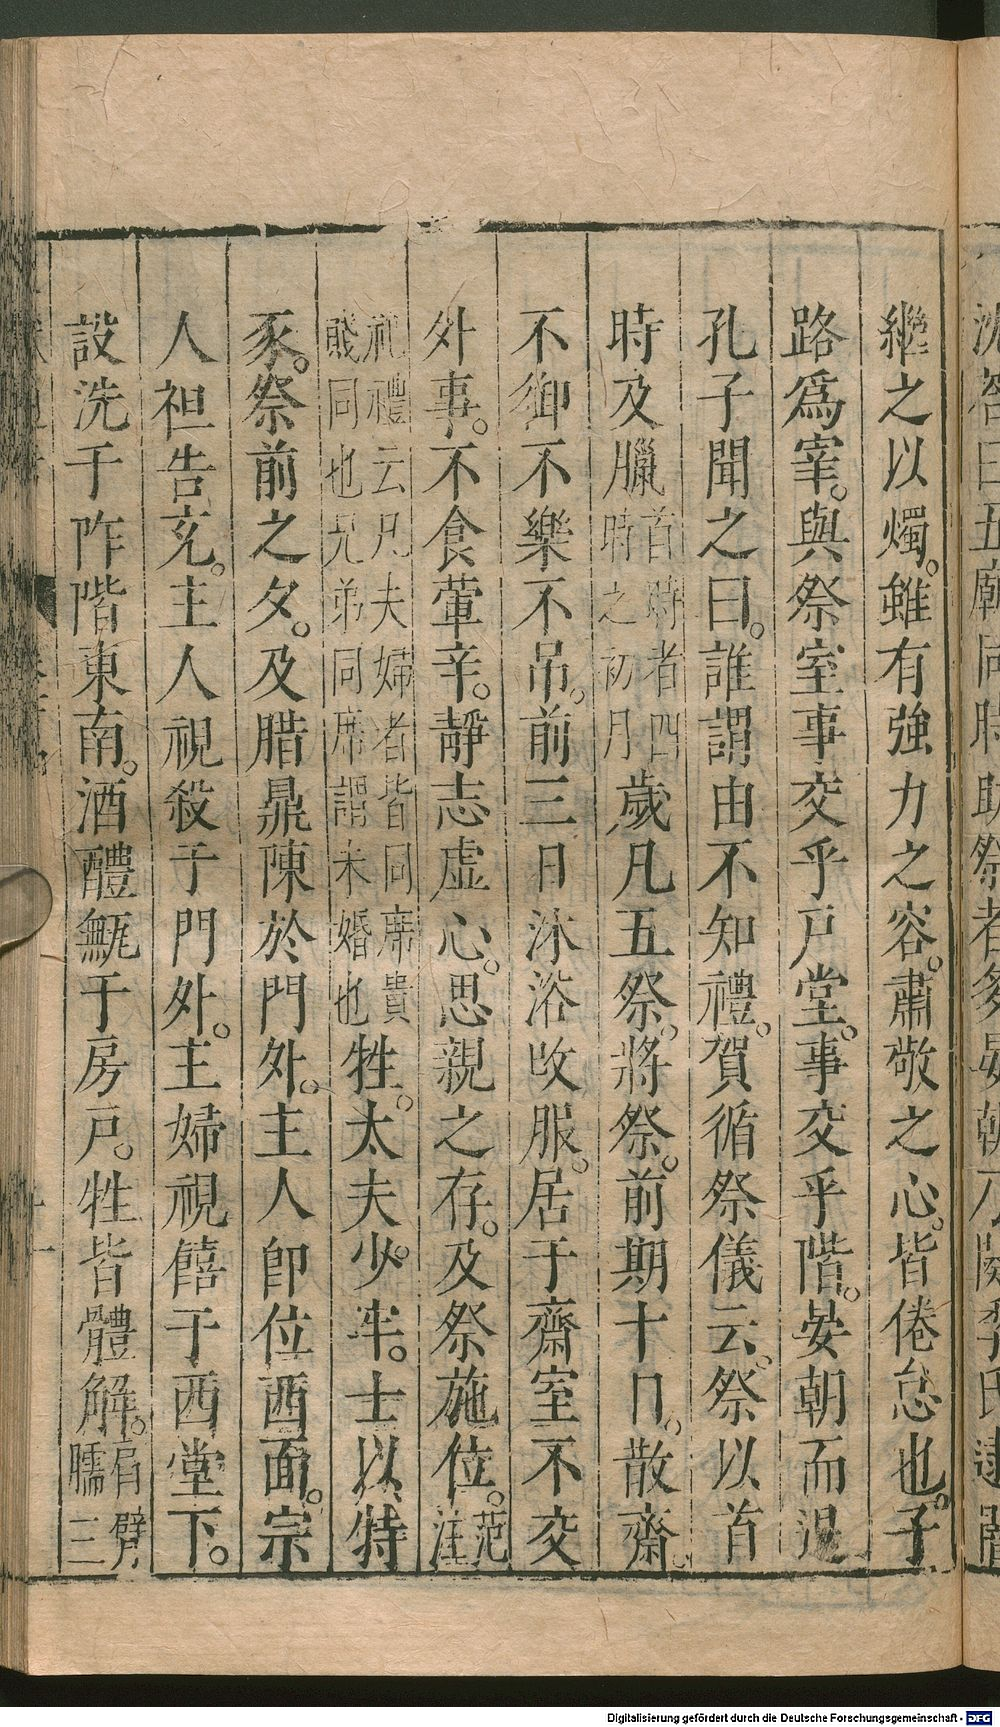 繼之以燭。雖有強力之容。肅敬之心。皆倦怠也。子
路為宰。與祭室事交乎戶堂。事交乎階。晏朝而退
孔子聞之曰。誰謂由不知禮。賀循祭儀云。祭以首
時及臘首時者四時之初月歲凡五祭。將祭。前期十日。散齋。
不御不樂不吊。前三日沐浴改服。居于齋室不交
外事。不食葷辛。靜志虛心。思親之存。及祭施位。范注
祀禮云凡夫婦者皆同席貴賤同也兄弟同席謂未婚也牲。太夫少。牢。士以特
豕。祭前之夕。及腊鼎陳於門外。主人即位西面。宗
人袒告充。主人視殺于門外。主婦視饎于西堂下。
設洗于阼階東南。酒醴甒于房戶。牲皆體解。肩臂臑三
Digitalisierung gefördert durch die Deutsche Forschungsgemeinschaft - DFG